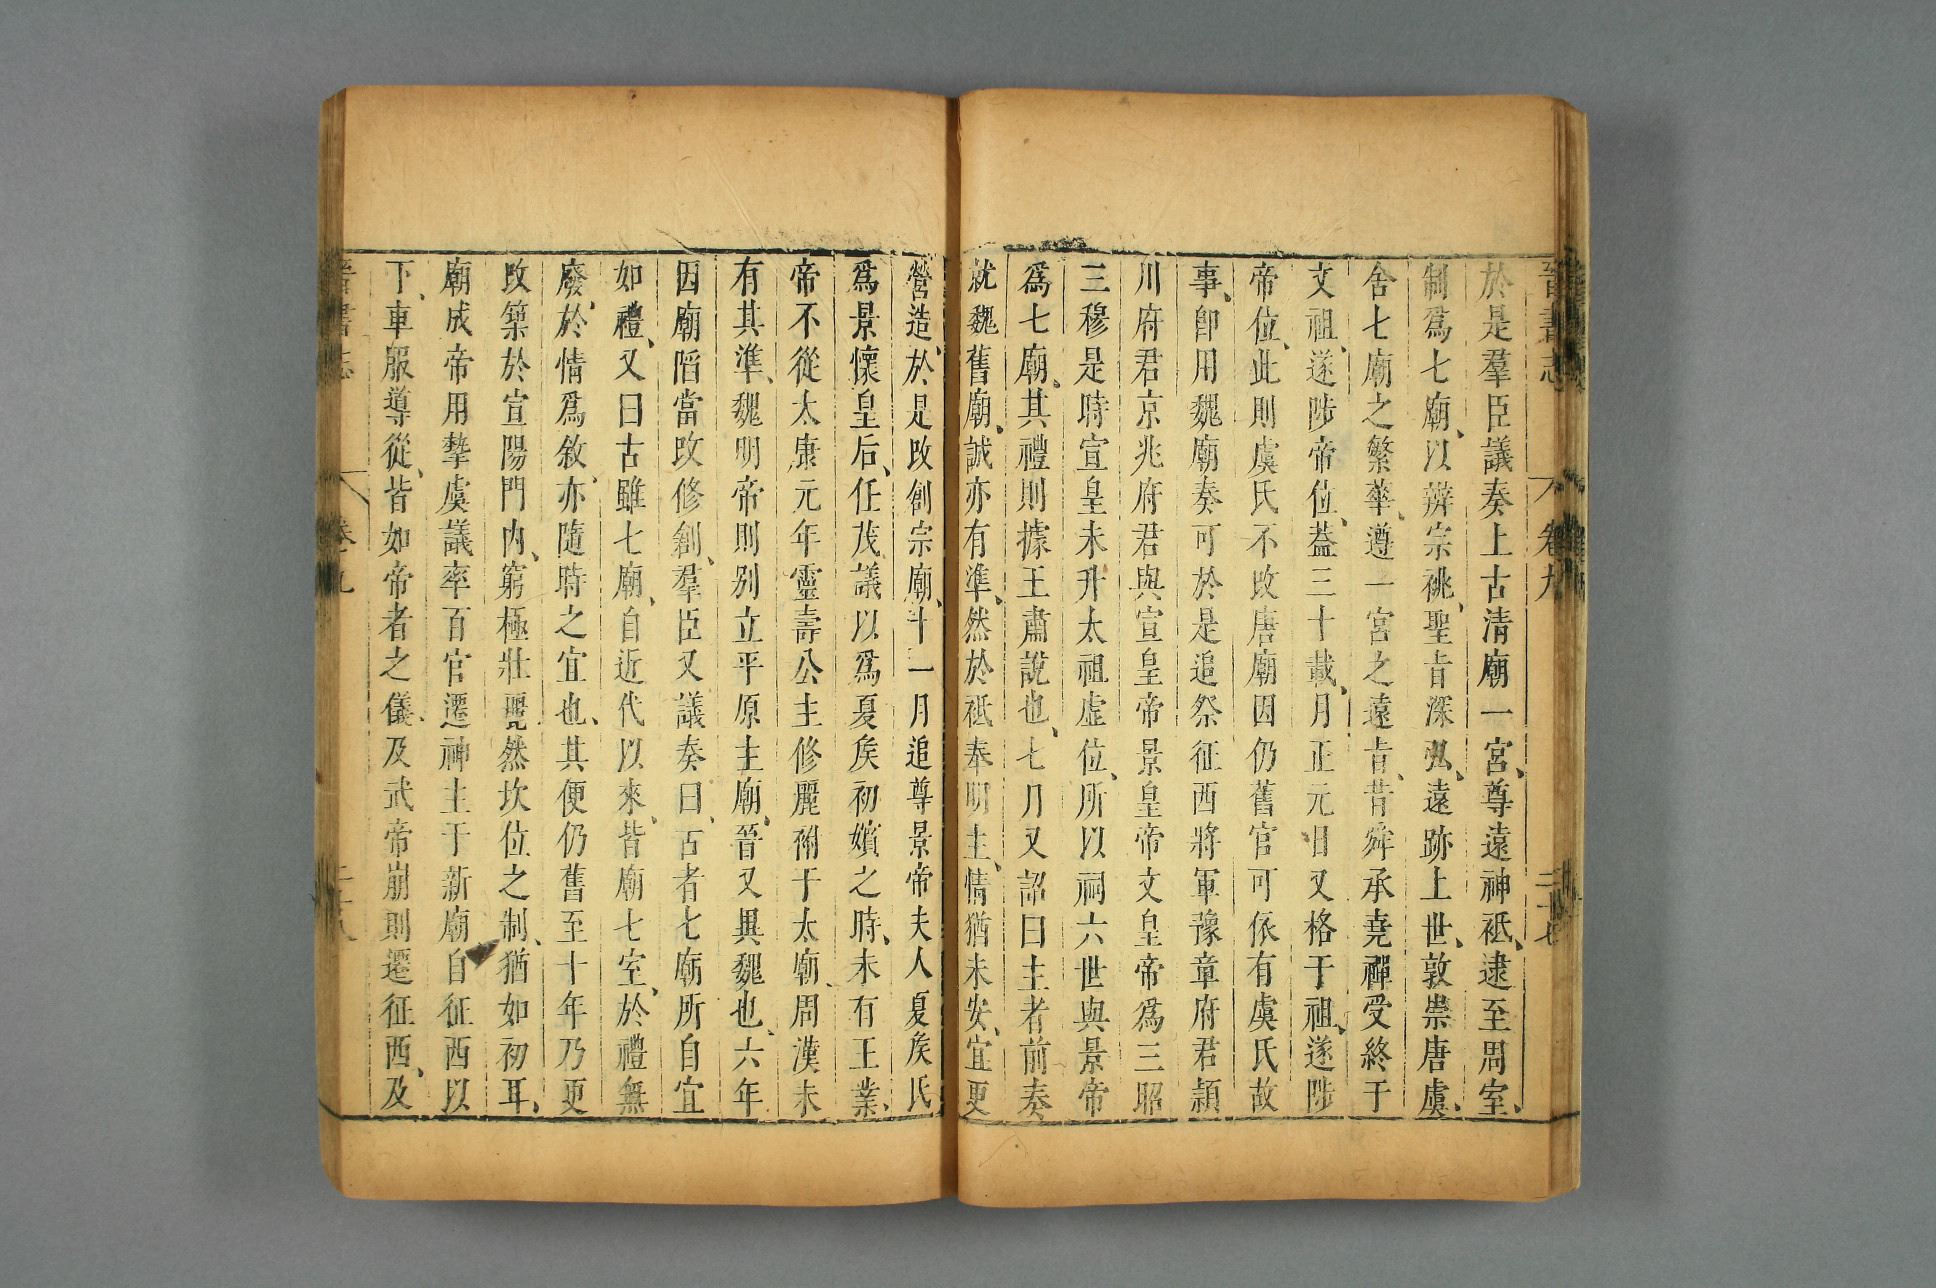 晉書志 卷九 二十七
於是羣臣議奏上古清廟一宮、尊遠神祗、逮至周室、
制爲七廟、以辨宗祧、聖旨深弘、遠跡上世、敦崇唐虞、
舍七廟之繁華、遵一宮之遠旨、昔舜承堯禪受終于
文祖、遂陟帝位、蓋三十載、月正元日又格于祖、遂陟
帝位、此則虞氏不改唐廟因仍舊官可依有虞氏故
事、卽用魏廟奏可於是追祭征西將軍豫章府君潁
川府君京兆府君與宣皇帝景皇帝文皇帝爲三昭
三穆是時宣皇未升太祖虛位、所以祠六世與景帝
爲七廟、其禮則據王肅說也、七月又詔曰主者前奏
就魏舊廟、誠亦有準、然於祗奉明主、情猶未安、宜更
營造、於是改創宗廟、十一月追尊景帝夫人夏矦氏
爲景懷皇后、任茂議以爲夏矦初嬪之時、未有王業、
帝不從太康元年靈壽公主修麗祔于太廟、周漢未
有其準、魏明帝則別立平原主廟、晉又異魏也、六年
因廟䧟當改修創、羣臣又議奏曰、古者七廟所自宜
如禮、又曰古雖七廟、自近代以來、皆廟七室、於禮無
廢、於情爲敘、亦隨時之宜也、其便仍舊至十年乃更
改築於宣陽門内、窮極壯麗然坎位之制、猶如初耳、
廟成帝用摯虞議率百官遷神主于新廟自征西以
下、車服導從、皆如帝者之儀、及武帝崩則遷征西、及
晉書志 卷九 二十八